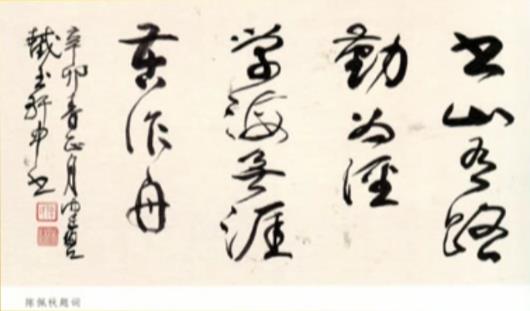 书山有路
勤为徑
学海无涯
苦作舟
辛卯春正月
截玉轩中书
陈佩秋题词